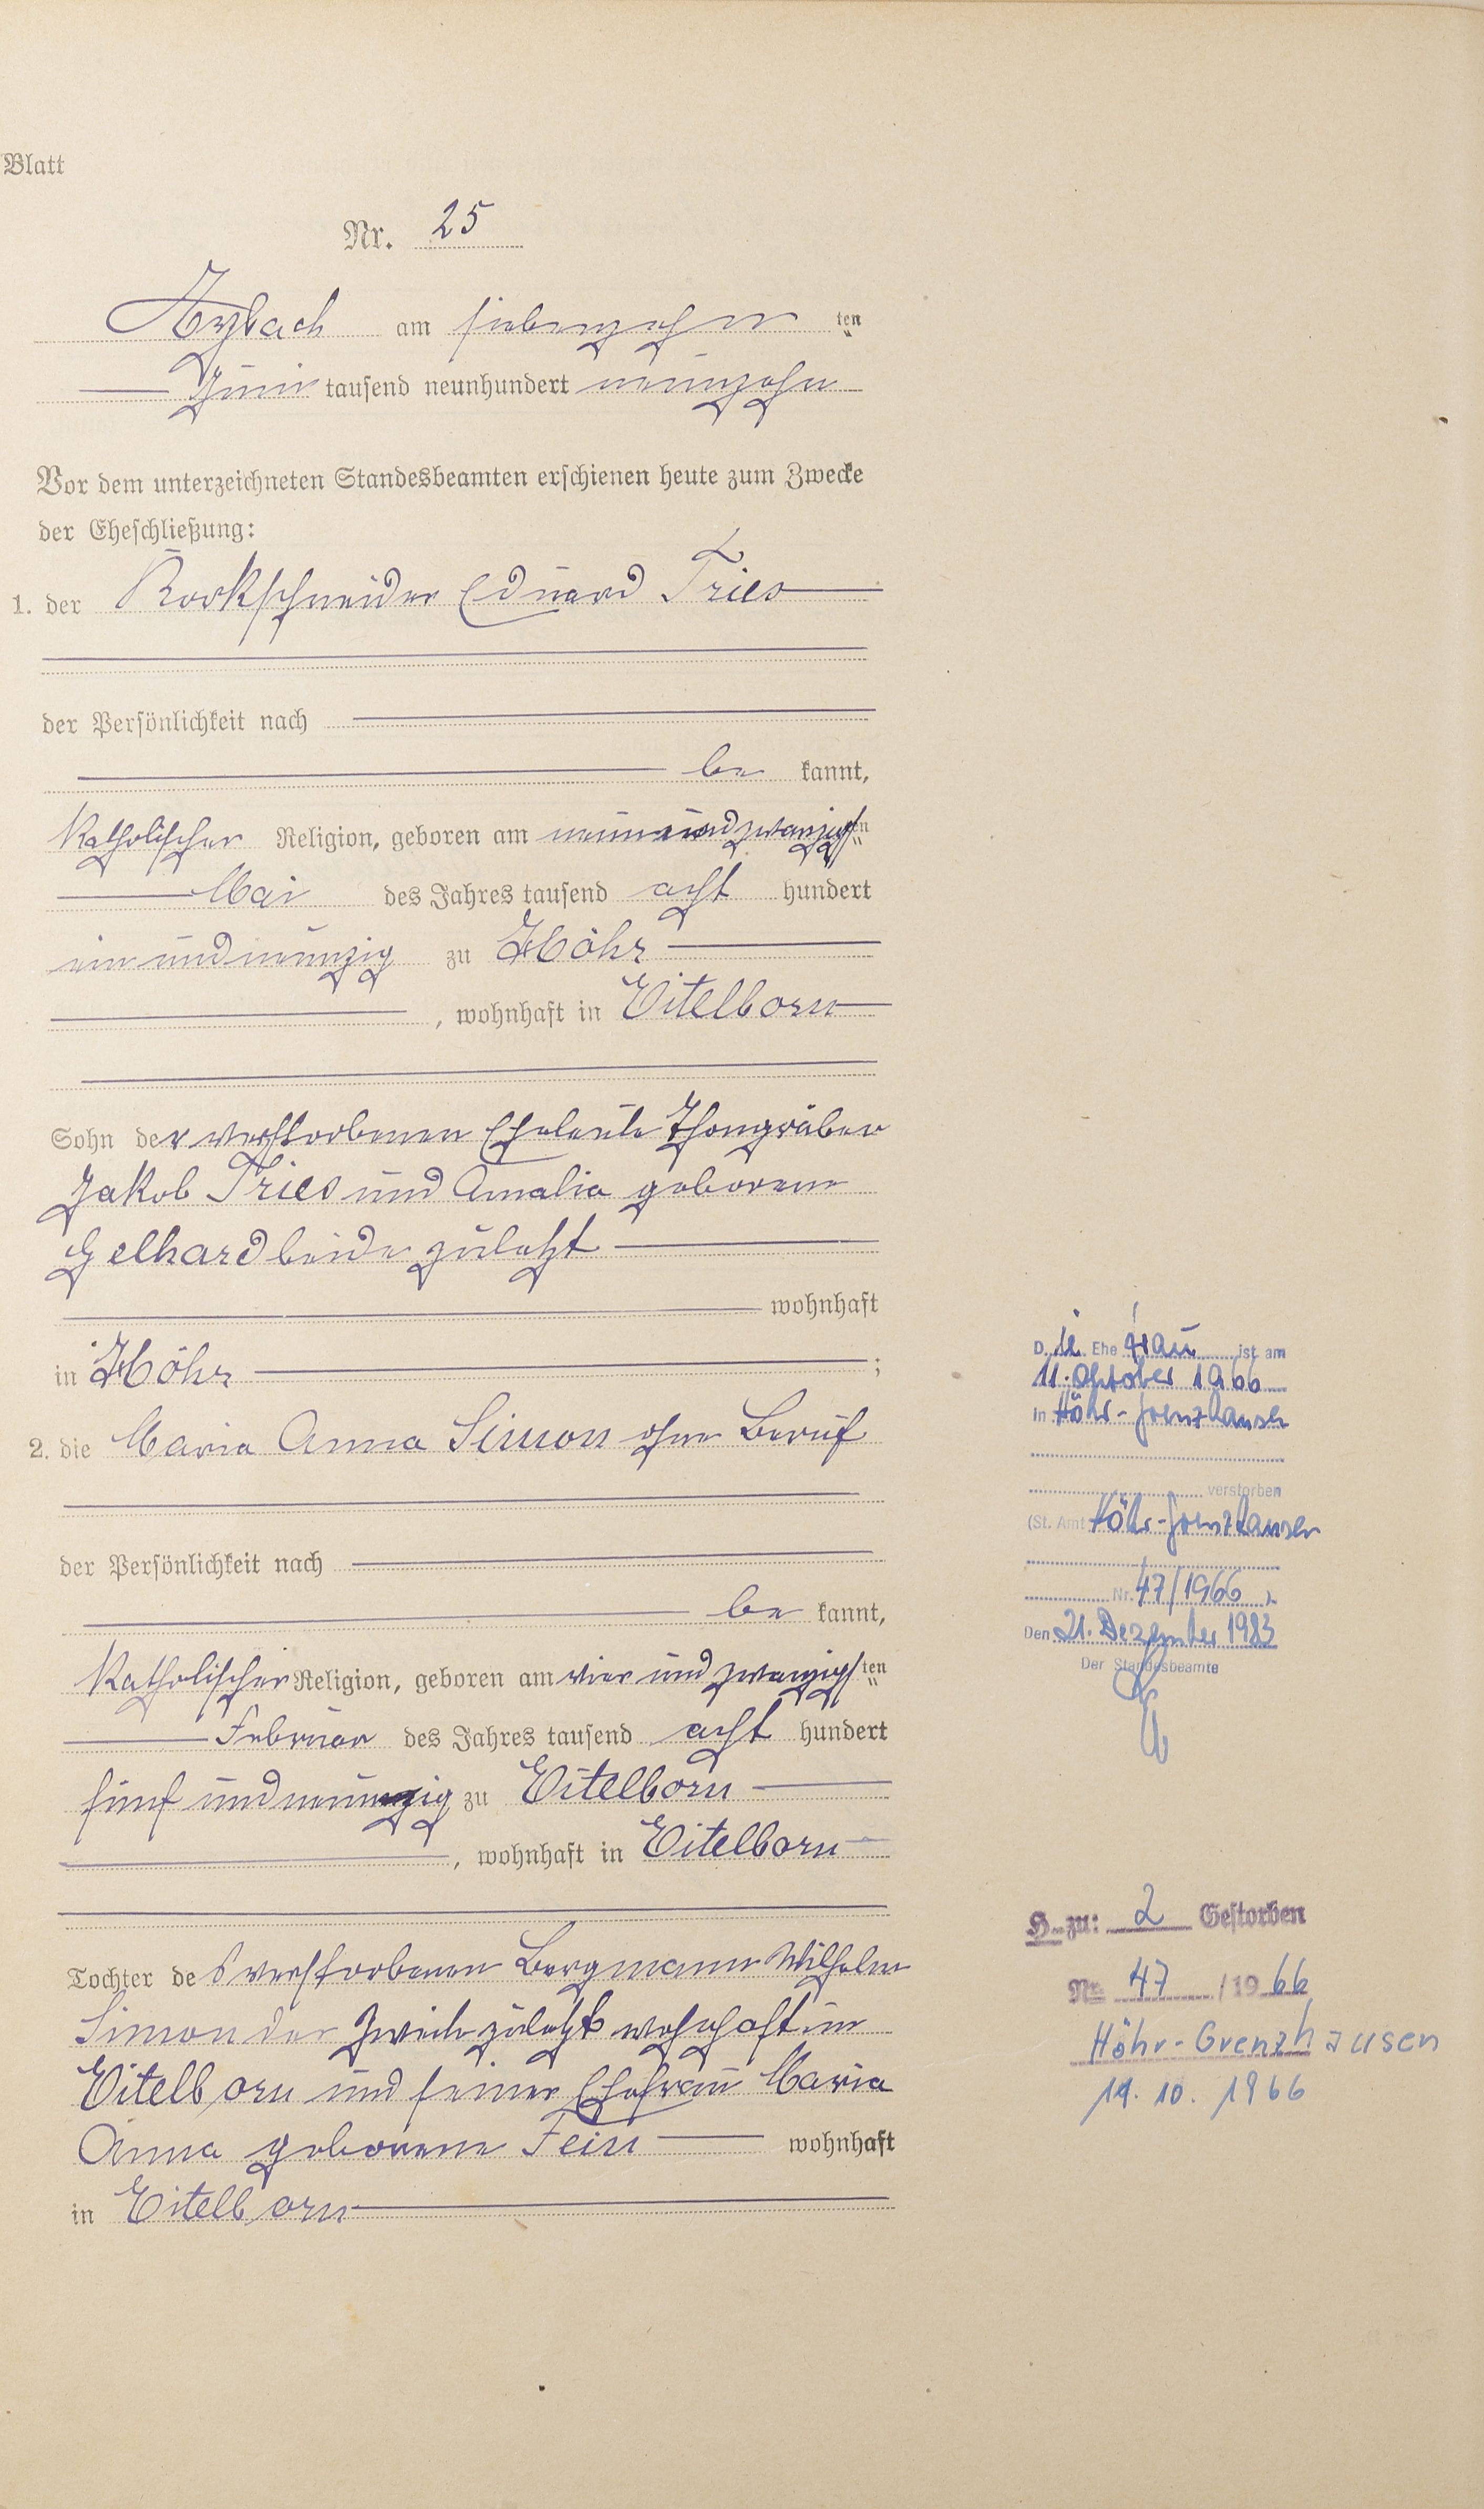 Blatt
Nr. 25
Arzbach am siebenzehn ten
Juni tausend neunhundert neunzehn
Vor dem unterzeichneten Standesbeamten erschienen heute zum Zwecke
der Eheschließung:
1. der Korkschneider Eduard Fries
der Persönlichkeit nach
be kannt,
Katholischer Religion, geboren am neunundzwanzigsten
Mai des Jahres tausend acht hundert
ein und neunzig zu Höhr
, wohnhaft in Eitelborn
Sohn der verstorbenen Eheleute Thongräber
Jakob Fries und Amalia geborene
Gelhard beide zuletzt
wohnhaft
in Höhr ;
2. die Maria Anna Simon ohne Beruf
der Persönlichkeit nach
be kannt,
Katholischer Religion, geboren am vier und zwanzigsten
Februar des Jahres tausend acht hundert
fünf und neunzig zu Eitelborn
, wohnhaft in Eitelborn
Tochter des verstorbenen Bergmann Wilhelm
Simon der Zweite zuletzt wohnhaft in
Eitelborn und seiner Ehefrau Maria
Anna geborene Fein wohnhaft
in Eitelborn
Die Ehe frau ist am
11. Oktober 1966
in Höhr-Grenzhausen
verstorben
(St. Amt Höhr-Grenzhausen
Nr. 47/1966 ).
Den 21. Dezember 1983
Der Standesbeamte
H. zu: 2 Gestorben
Nr. 47 / 19 66
Höhr-Grenzhausen
14. 10. 1966